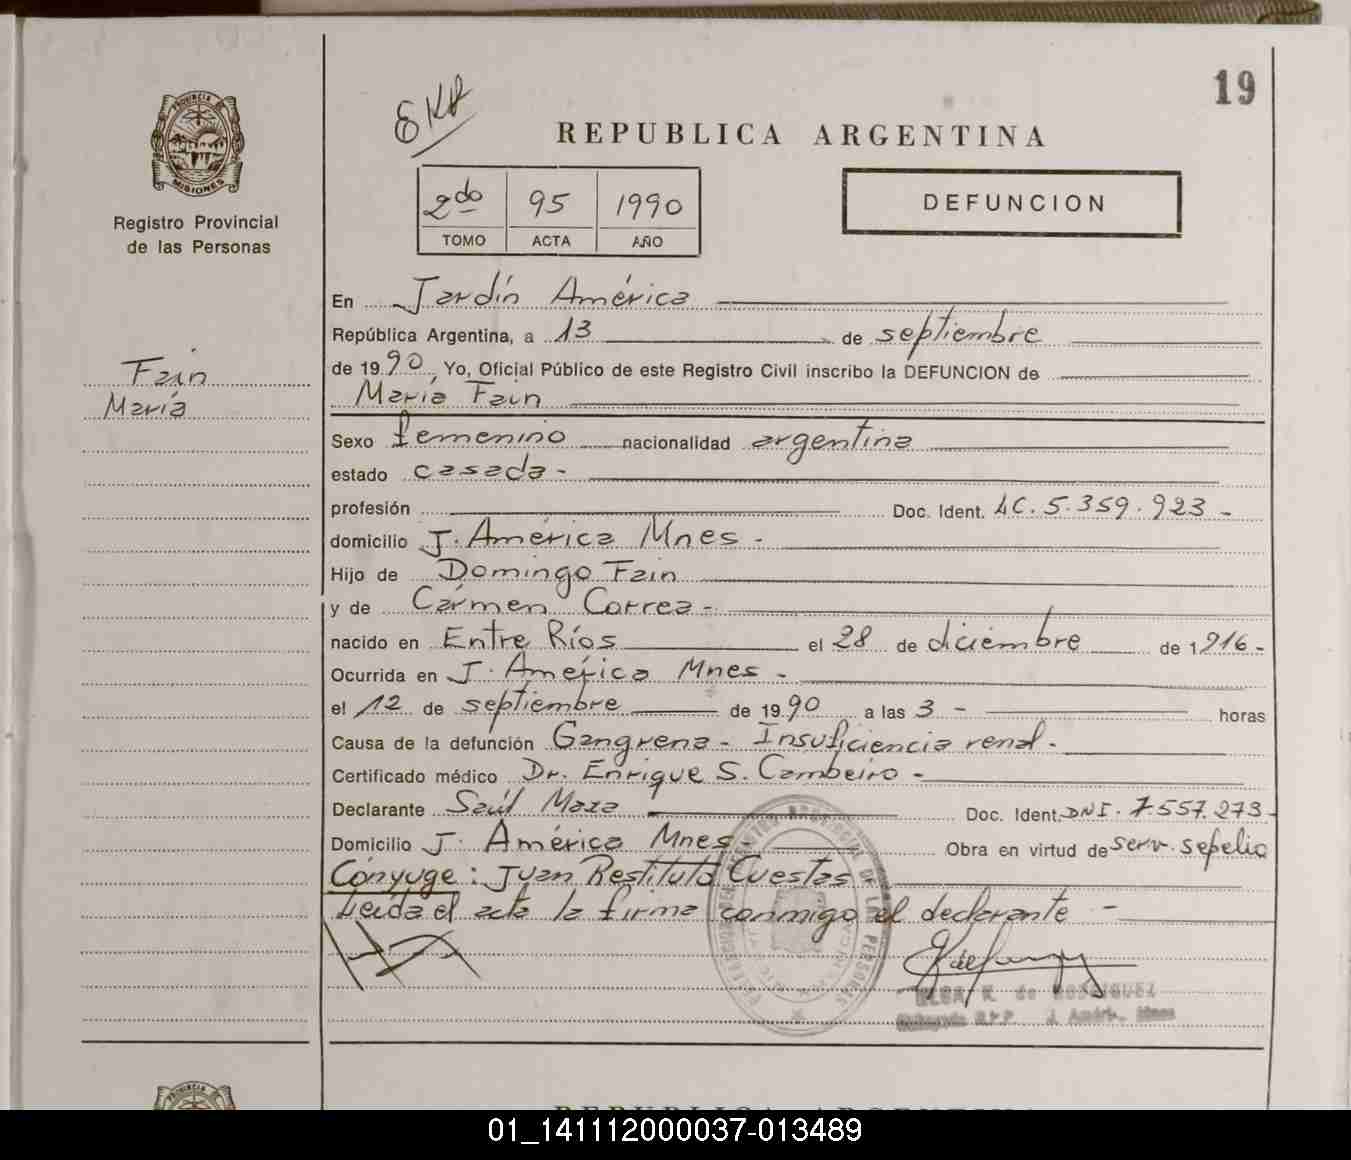 19
REPUBLICA ARGENTINA
PROVINCIA DE
MISIONES
Registro Provincial
de las Personas
2do 95 1990
TOMO ACTA AÑO
DEFUNCION
En Jardín América
República Argentina, a 13 de septiembre
de 1990, Yo, Oficial Público de este Registro Civil inscribo la DEFUNCION de
Fain
María
María Fain
Sexo femenino nacionalidad argentina
estado casada -
profesión Doc. Ident. LC. 5.359.923 -
domicilio J. América Mnes -
Hijo de Domingo Fain
y de Carmen Correa -
nacido en Entre Ríos el 28 de diciembre de 1916 -
Ocurrida en J. América Mnes -
el 12 de septiembre de 1990 a las 3 - horas
Causa de la defunción Gangrena - Insuficiencia renal -
Certificado médico Dr. Enrique S. Cambeiro -
Declarante Saúl Maza Doc. Ident. DNI. 7.557.273 -
Domicilio J. América Mnes - Obra en virtud de serv. sepelio
Cónyuge: Juan Restituto Cuestas -
Leída el acta la firma conmigo el declarante -
ELSA R. de RODRIGUEZ
J. Améric. Mnes
REPUBLICA ARGENTINA
01_141112000037-013489